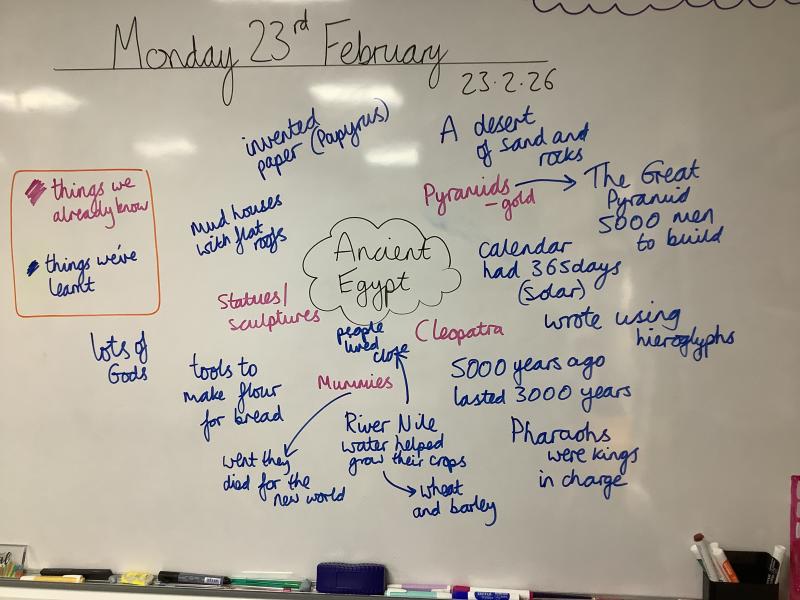 Monday 23rd February
23.2.26
things we
already know
things we've
learnt
invented
paper (Papyrus)
A desert
of sand and
rocks
Pyramids
- gold
The Great
Pyramid
5000 men
to build
Mud houses
with flat
roofs
Ancient
Egypt
calendar
had 365days
(solar)
Statues/
sculptures
people
lived
close
Cleopatra
wrote using
hieroglyphs
lots of
Gods
tools to
make flour
for bread
Mummies
5000 years ago
lasted 3000 years
River Nile
water helped
grow their crops
Pharaohs
were kings
in charge
went they
died for the
new world
wheat
and barley